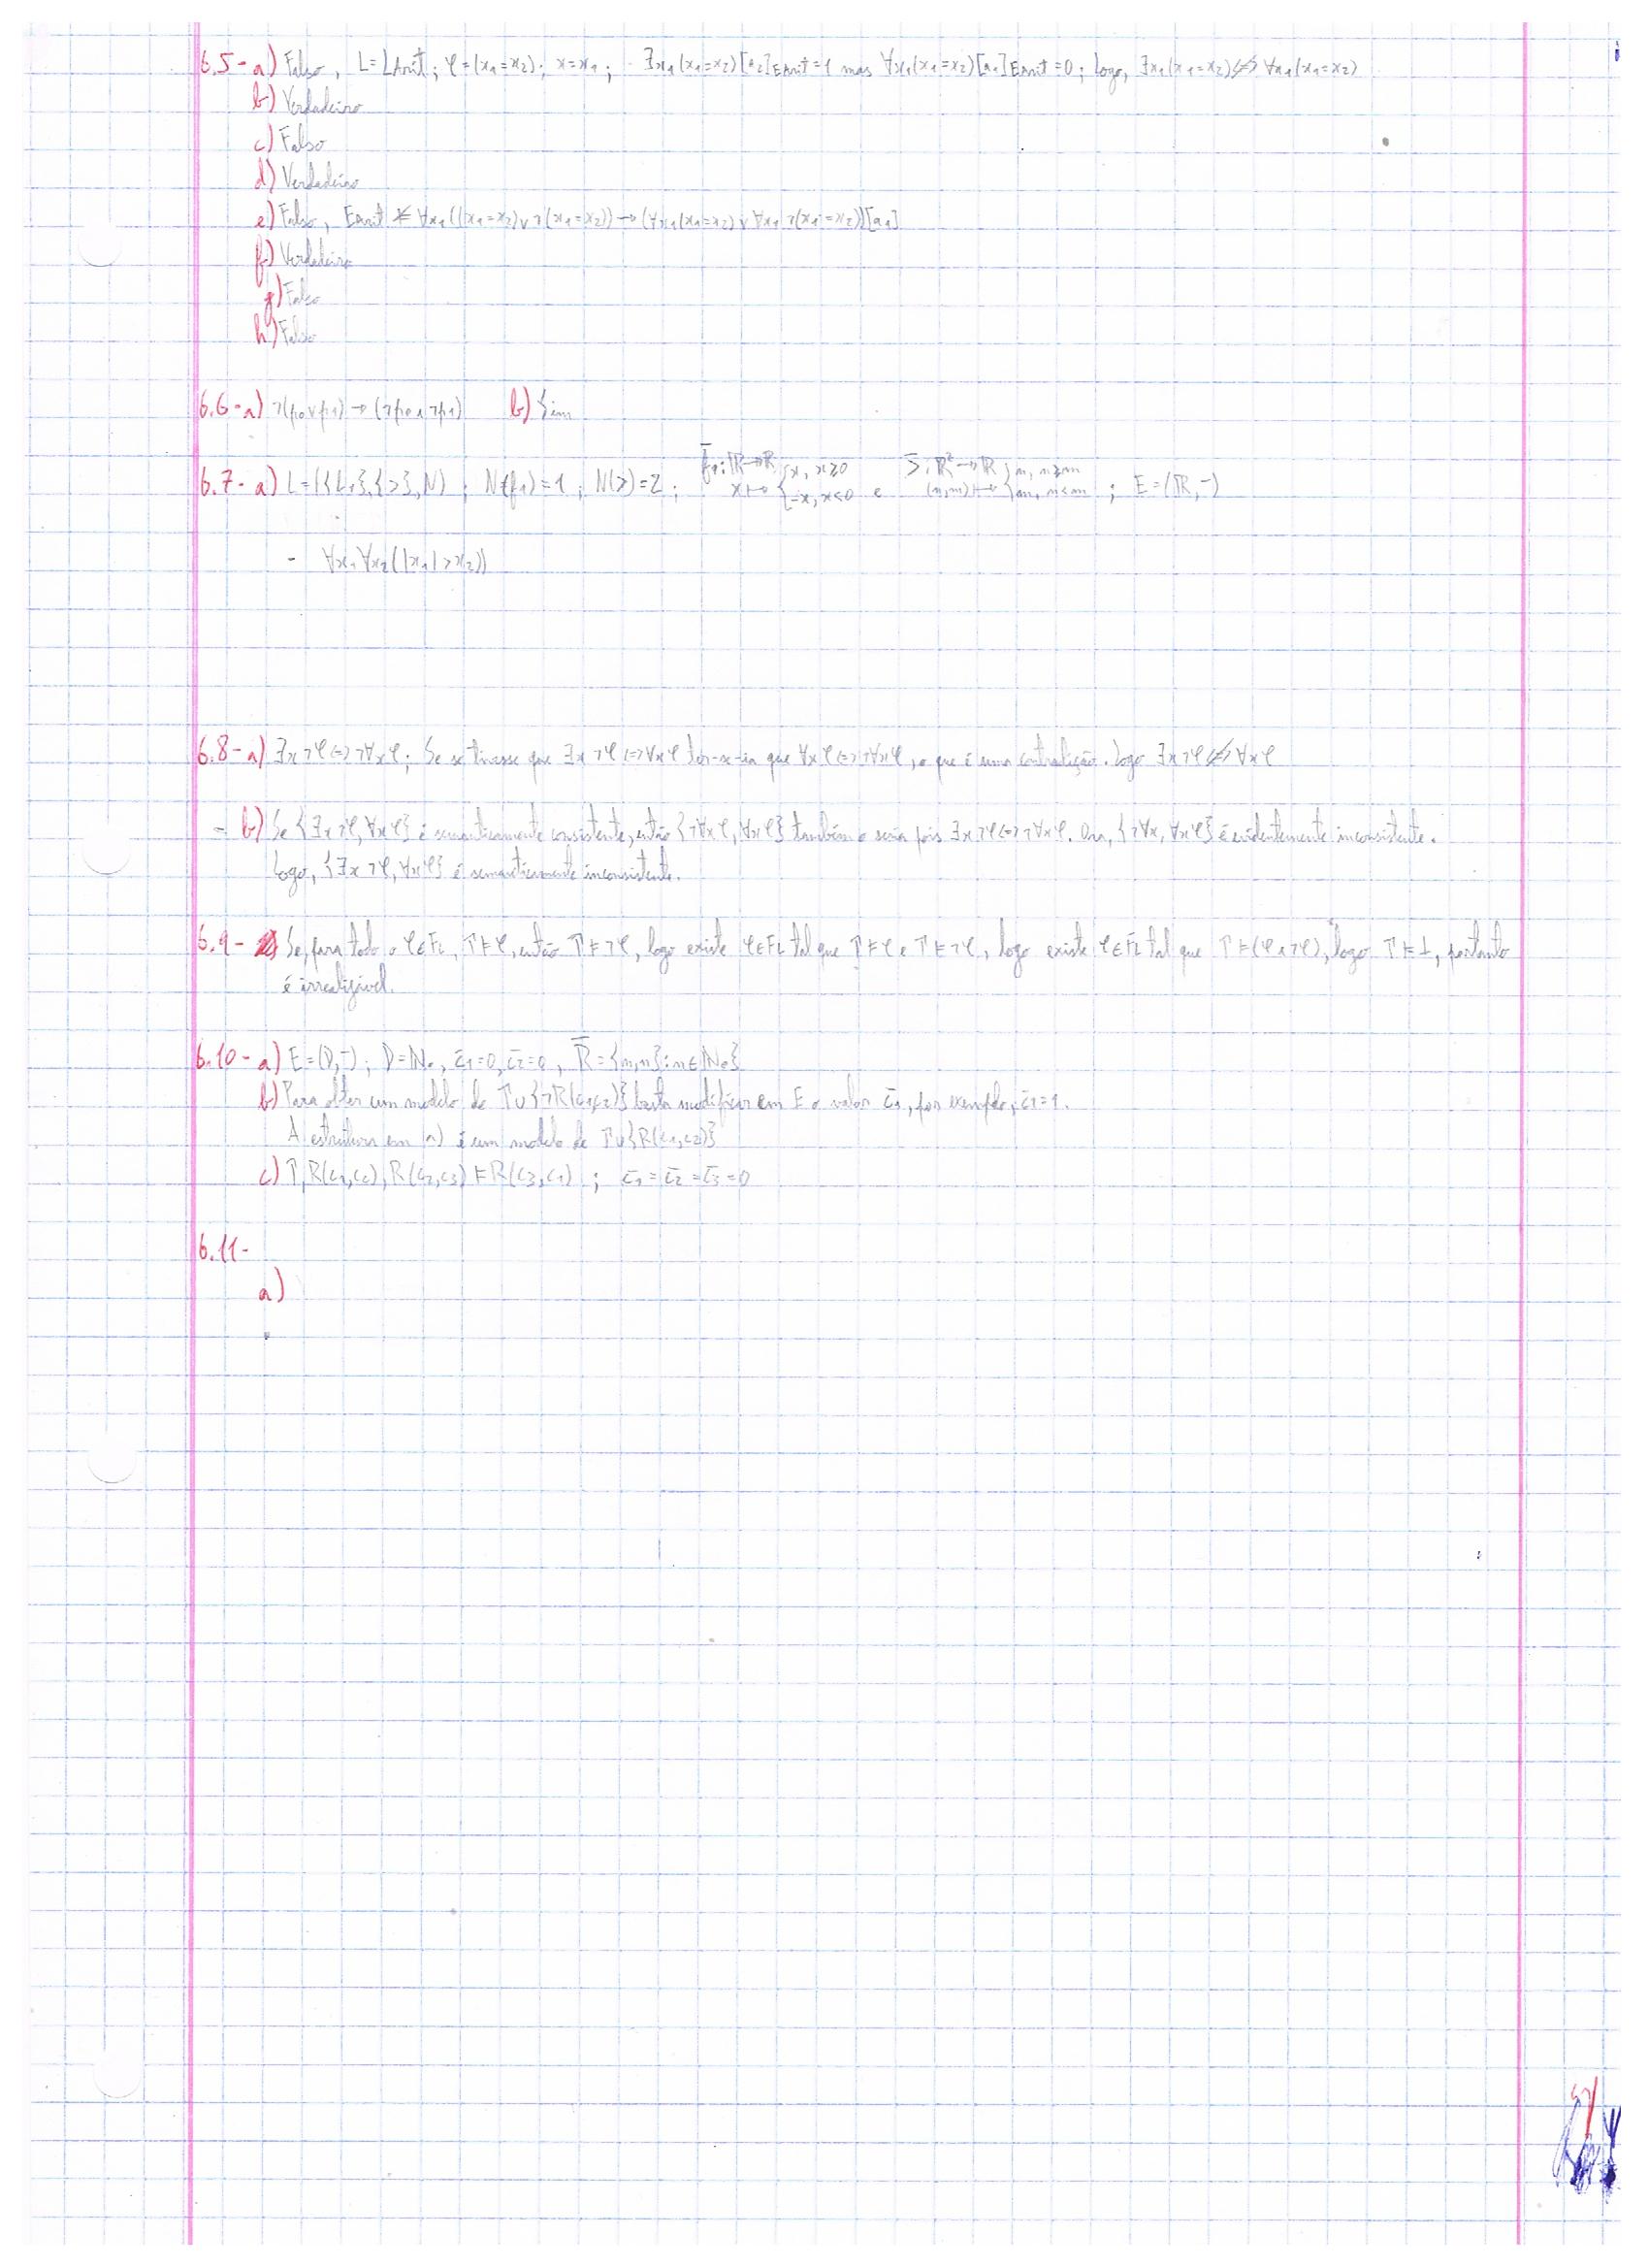 6.5- a) Falso, L=LArit; φ=(x₁=x₂); x=x₁; ∃x₁(x₁=x₂)[a₂]EArit=1 mas ∀x₁(x₁=x₂)[a₁]EArit=0; logo, ∃x₁(x₁=x₂)⇎∀x₁(x₁=x₂)
b) Verdadeiro
c) Falso
d) Verdadeiro
e) Falso, EArit ⊭ ∀x₁((x₁=x₂)∨¬(x₁=x₂))→(∀x₁(x₁=x₂)∨∀x₁¬(x₁=x₂))[a₁]
f) Verdadeiro
g) Falso
h) Falso
6.6-a) ¬(p₀∨p₁)→(¬p₀∧¬p₁) b) Sim
6.7-a) N(f₁)=1; N(>)=2; f̄₁:ℝ→ℝ x↦{x, x≥0 -x, x<0 e >̄:ℝ²→ℝ ; E=(ℝ,-)
- ∀x₁∀x₂(|x₁|>x₂))
6.8-a) ∃x¬φ⇔¬∀xφ; Se se tivesse que ∃x¬φ⇔∀xφ ter-se-ia que ∀xφ⇔¬∀xφ, o que é uma contradição. Logo ∃x¬φ⇎∀xφ
- b) Se {∃x¬φ,∀xφ} é semanticamente consistente, então {¬∀xφ,∀xφ} também o seria pois ∃x¬φ⇔¬∀xφ. Ora, {¬∀x,∀xφ} é evidentemente inconsistente.
Logo, {∃x¬φ,∀xφ} é semanticamente inconsistente.
6.9- Se, para todo o φ∈FL, Γ⊨φ, então Γ⊨¬φ, logo existe φ∈FL tal que Γ⊨φ e Γ⊨¬φ, logo existe φ∈FL tal que Γ⊨(φ∧¬φ), logo Γ⊨⊥, portanto
é irrealizável.
6.10-a) E=(D,-); D=ℕ₀, c̄₁=0, c̄₂=0, R̄={n,n}:n∈ℕ₀}
b) Para obter um modelo de Γ∪{¬R(c₁,c₂)} basta modificar em E o valor c̄₁, por exemplo, c̄₁=1.
A estrutura em (a) é um modelo de Γ∪{R(c₁,c₂)}
c) Γ,R(c₁,c₂),R(c₂,c₃)⊨R(c₃,c₁) ; c̄₁=c̄₂=c̄₃=0
6.11-
a)